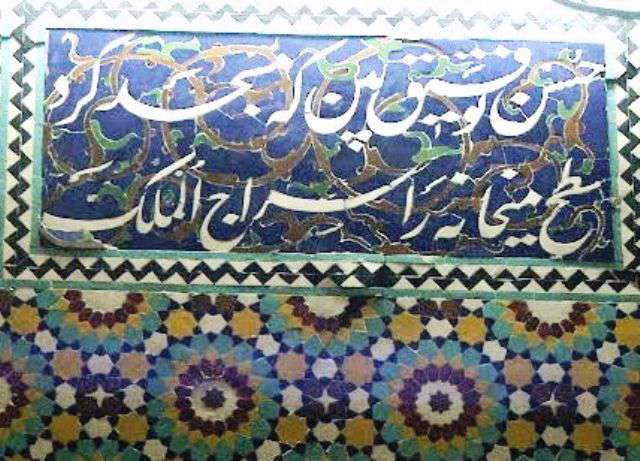 حسن توفیق بین که مسجد کرد
سطح میخانه را سراج الملک